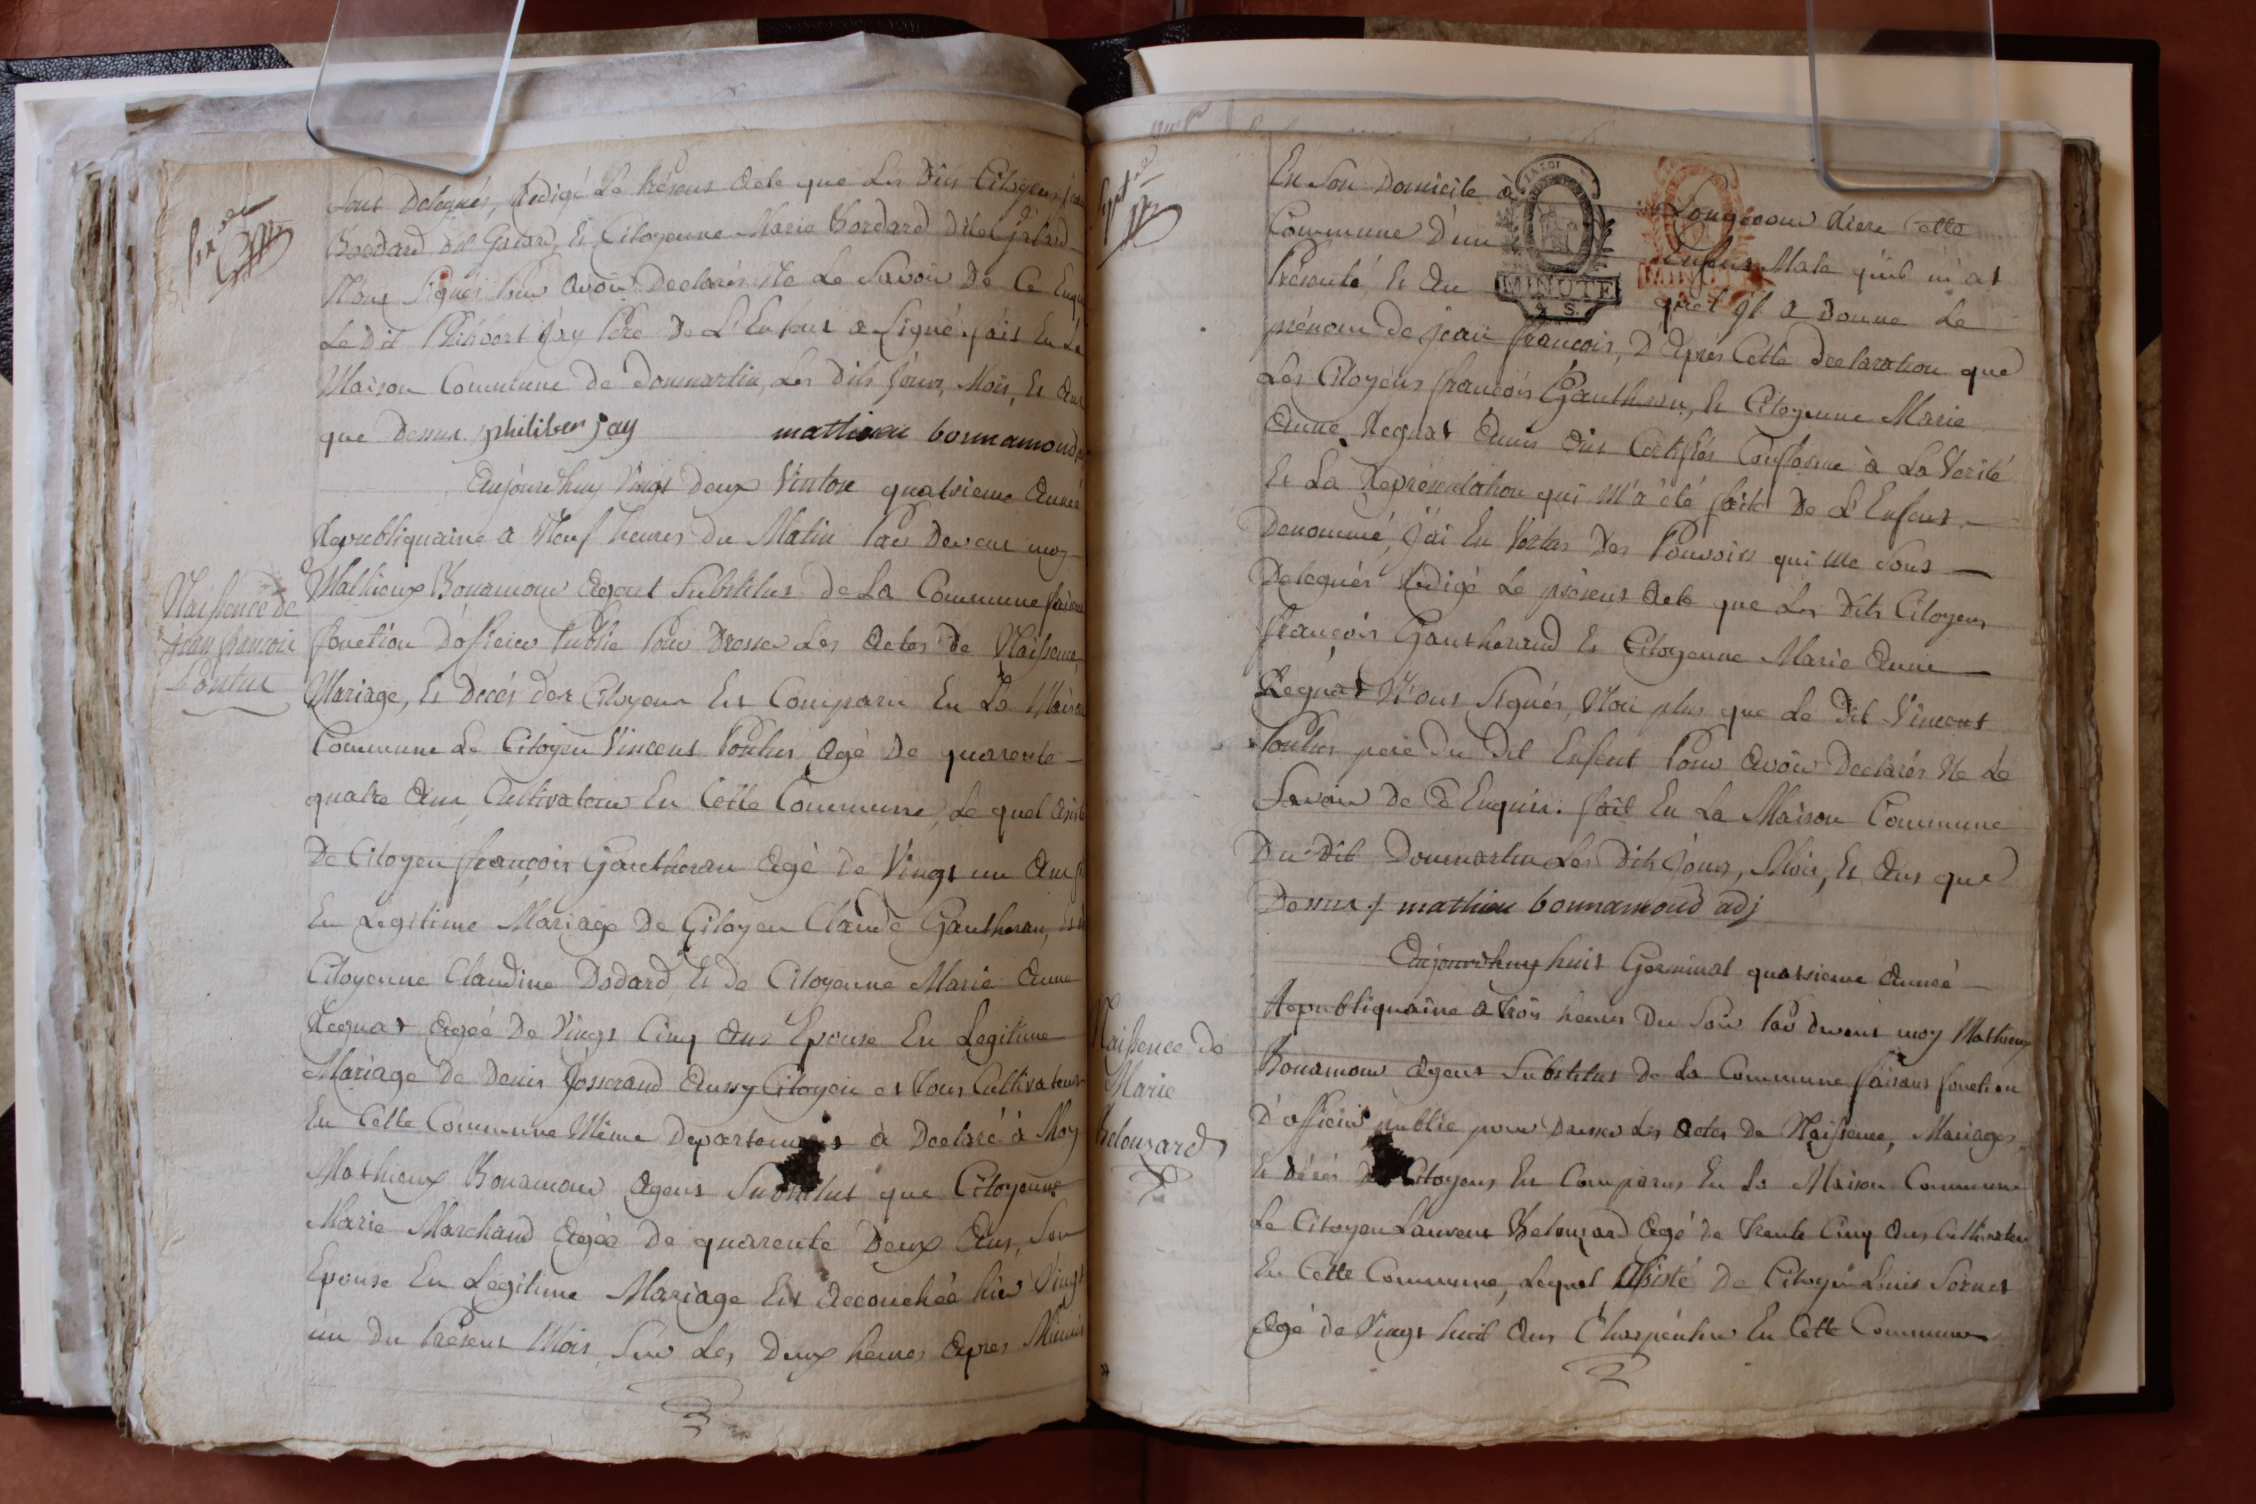 sont Delegués, Redigé Le Présent Acte que Les Dits Citoyens
Bordard dit Galard, Et Citoyenne Marie Bordard Ditte Galard
N'ont Signés Pour Avoir Declarés Ne Le Savoir De Ce Enquis
Le Dit Philibert Jay Père De L'Enfant a Signé fait En La
Maison Commune De Dommartin, Les Dits Jours, Mois, Et Ans
que Dessus. philiber jay mathieu bonnamoud
Aujourd'huy Vingt Deux Vintose quatrieme Année
Republiquaine a Neuf heures Du Matin Par Devant moy
Naissence de
Jean françois
Poutus
Mathieux Bonamour Agent Substitus De La Commune faisant
fonction D'officier Public Pour Dresser Les Actes De Naissence,
Mariage, Et Decés des Citoyens Est Comparu En La Maison
Commune Le Citoyen Vincent Poutus Agé De quarrente
quatre Ans, Cultivateur En Cette Commune, Le quel Assisté
De Citoyen françois Gautheran Agé De Vingt un Ans
En Legitime Mariage De Citoyen Claude Gautheran, Et
Citoyenne Claudine Dodard, Et De Citoyenne Marie Anne
Regnat Agéé De Vingt Cinq Ans Epouse En Legitime
Mariage De Denis Josserand Aussy Citoyen et tous Cultivateurs
En Cette Commune Même Departement à Declaré à Moy
Mathieux Bonamour Agent Substitut que Citoyenne
Marie Marchand Agéé De quarrente Deux Ans, Son
Epouse En Legitime Mariage Est Accouchéé hier Vingt
un Du Présent Mois, Sur Les Deux heures Apres Minuit
En Son Domicile à Longecour Riere Cette
Commune D'un Enfant Male quil m'at
Présenté Et Au quel il a Donne Le
MINUTE
prénom de jean françois, D'Apres Cette Declaration que
Les Citoyens françois Gautheran, Et Citoyenne Marie
Anne Regnat Amis Ont Certifiés Conforme à La Verité
Et La Représentation qui M'a été faite De L'Enfant
Denommé, J'ai En Vertus Des Pouvoirs qui Me Sont
Delegués Redigé Le présent Acte que Les Dits Citoyens
françois Gautherand Et Citoyenne Marie Anne
Regnat N'ont Signés, Non plus que Le Dit Vincent
Poutus pere Du Dit Enfant Pour Avoir Declarés Ne Le
Savoir De Ce Enquis. fait En La Maison Commune
Du Dit Dommartin Les Dits Jours, Mois, Et Ans que
Dessus mathieu bonnamoud adj
Aujourd'huy huit Germinal quatrieme Année
Naissence De
Marie
Belouzard
Republiquaine a trois heures Du Soir Par Devant moy Mathieux
Bonamour Agent Substitus De La Commune faisant fonction
D'officier public pour Dresser Les Actes De Naissence, Mariages,
Et Décés Des Citoyens Est Comparus En La Maison Commune
Le Citoyen Laurent Belouzard Agé De Trente Cinq Ans Cultivateur
En Cette Commune, Lequel Assisté De Citoyen Louis Sornet
Agé De Vingt huit Ans Charpentier En Cette Commune